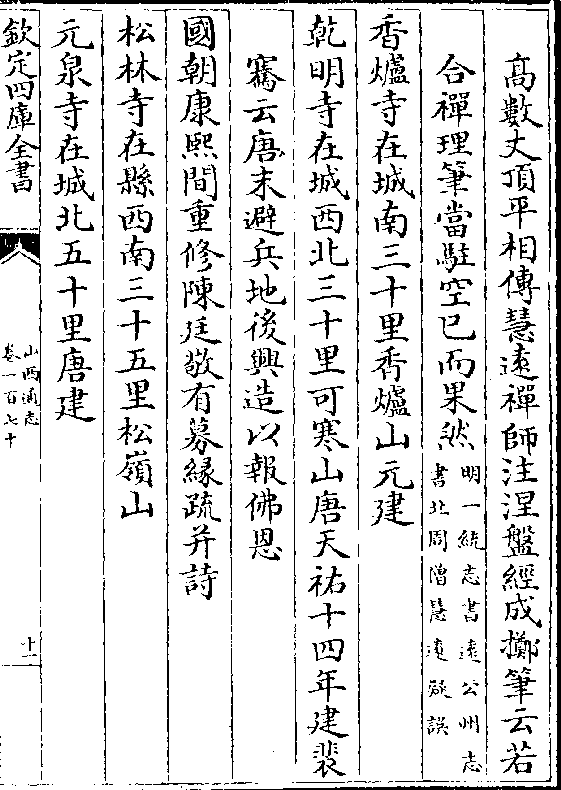 高數丈頂平相傳慧遠禪師注涅盤經成擲筆云若
合禪理筆當駐空已而果然明一統志書遠公州志
書北周僧慧遠疑誤
香爐寺在城南三十里香爐山元建
乾明寺在城西北三十里可寒山唐天祐十四年建裴
騫云唐末避兵地後興造以報佛恩
國朝康熙間重修陳廷敬有募緣疏并詩
松林寺在縣西南三十五里松嶺山
元泉寺在城北五十里唐建
欽定四庫全書
山西通志
卷一百七十
十一